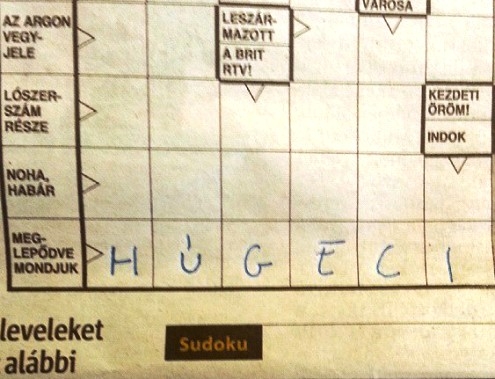 VÁROSA
AZ ARGON
VEGY-
JELE
LESZÁR-
MAZOTT
A BRIT
RTV!
LÓSZER-
SZÁM
RÉSZE
KEZDETI
ÖRÖM!
INDOK
NOHA,
HABÁR
MEG-
LEPŐDVE
MONDJUK
H Ú G E C I
leveleket
alábbi
Sudoku